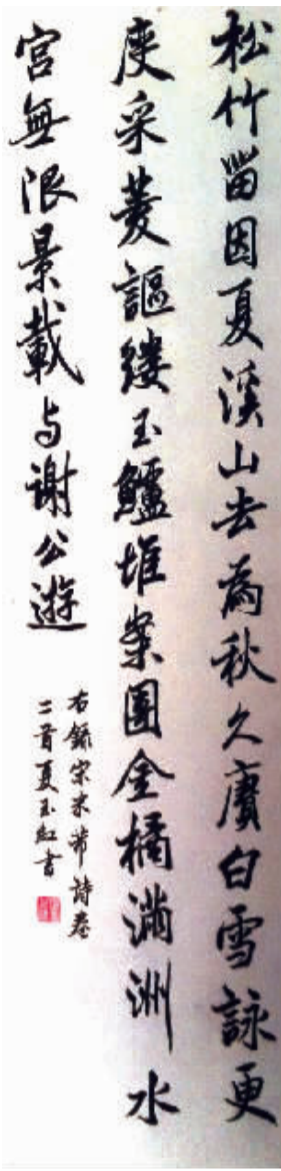 松竹留因夏溪山去為秋久賡白雪詠更
度采菱謳縷玉鱸堆案團金橘滿洲水
宮無限景載与谢公遊
右錄宋米芾詩卷
二首夏玉紅書